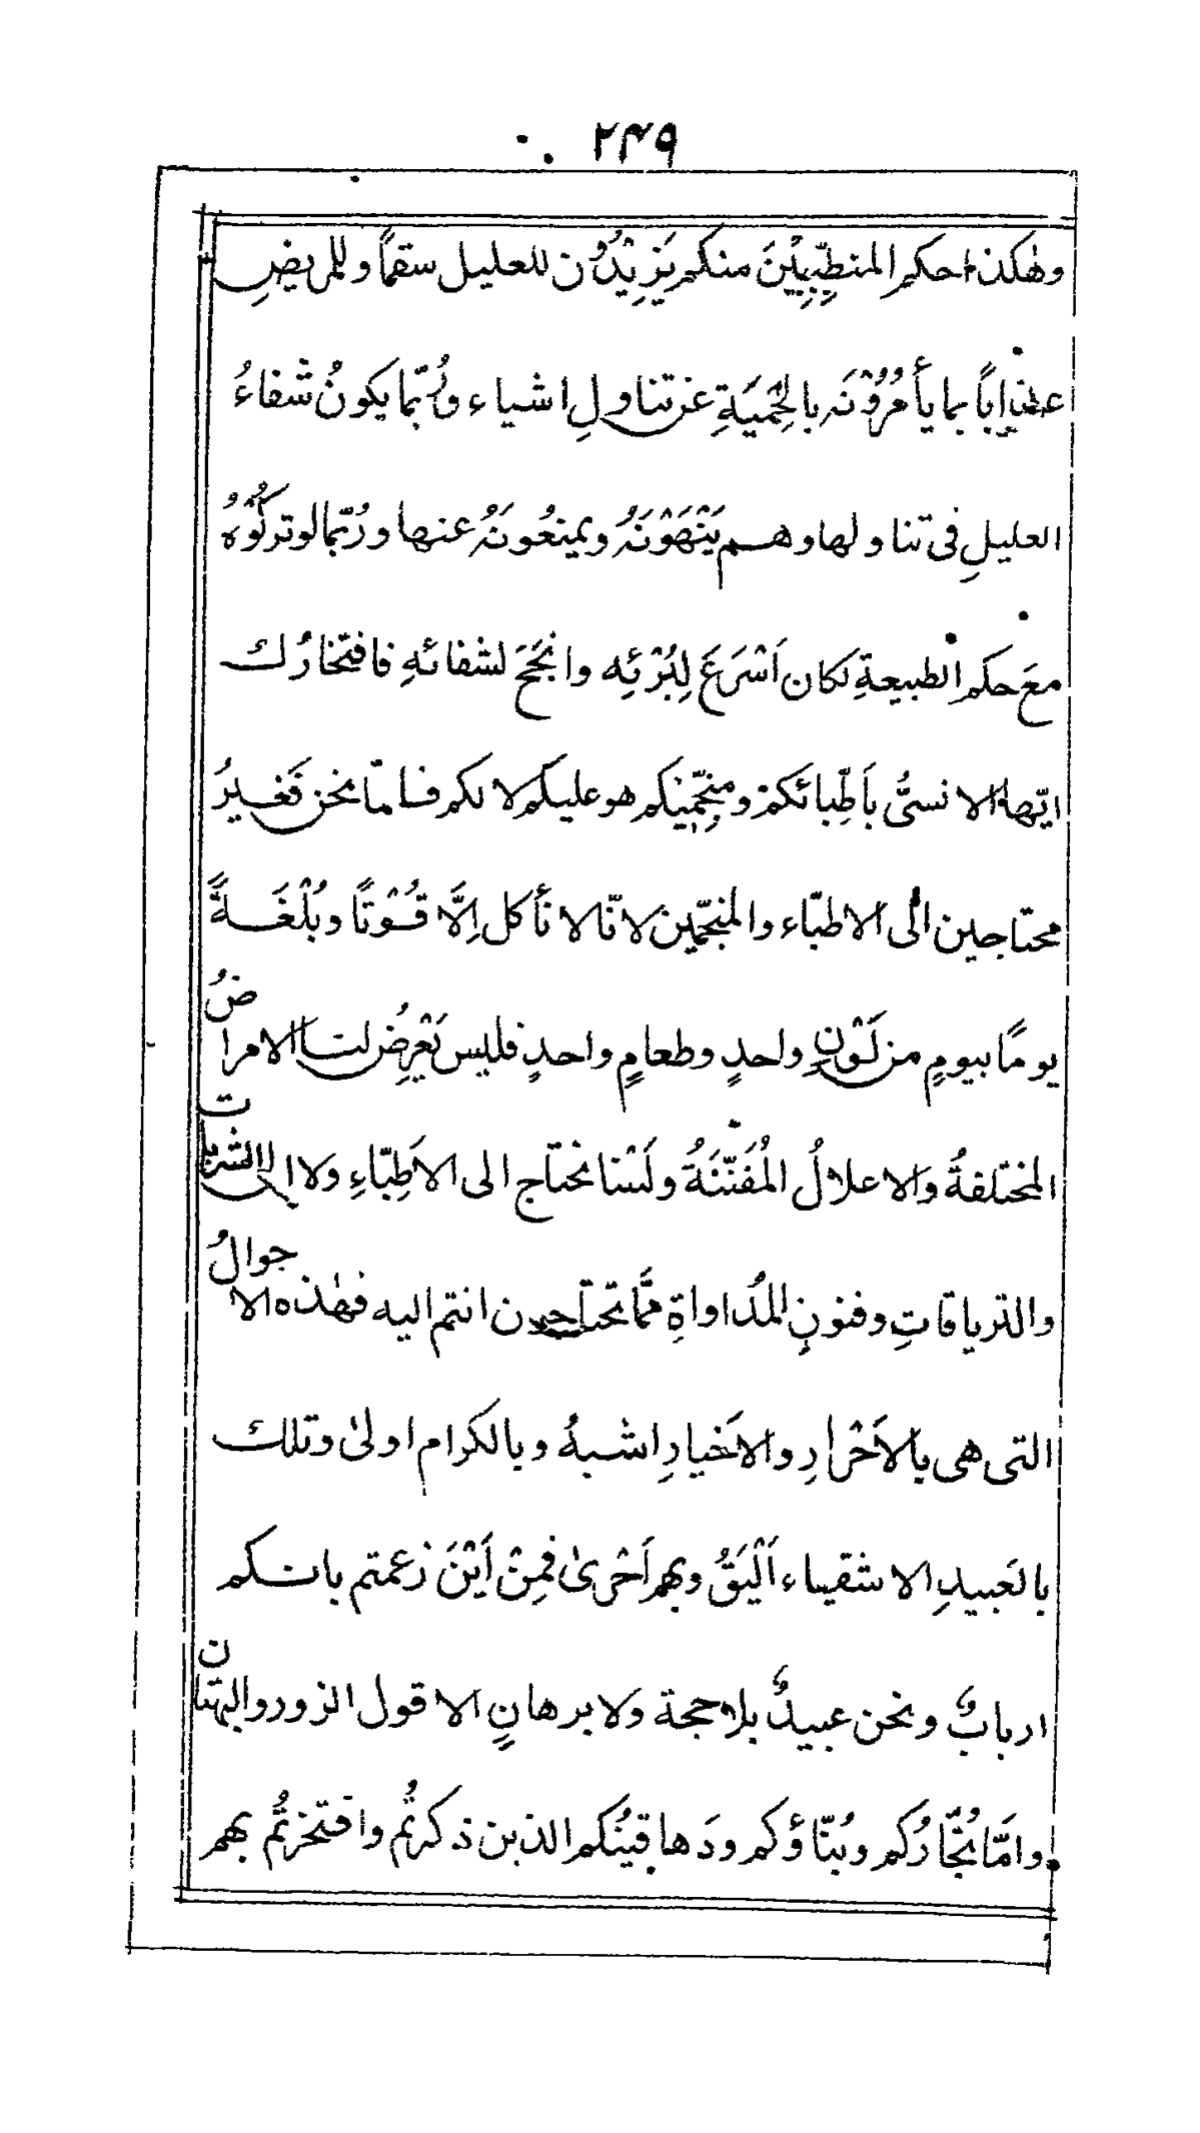 ۲۴۹
وهٰكذا حكم المتطبّبِيْنَ منكم يَزِيْدُوْن للعليل سقمًا وللمريضِ
عذابًا بما يأمُرُوْنَه بالحِمْيَةِ عن تناولِ اشياء ورُبّما يكونُ شفاءُ
العليلِ فى تناولها وهم يَنْهَوْنَهُ ويمنعُونَهُ عنها ورُبّما لو تركُوْهُ
معَ حكم الطبيعةِ لكان اَسْرَعَ لِبُرْئِه وانجَحَ لشفائهِ فافتخارُك
ايّها الانسىُّ بأَطِبّائكمْ ومنجّمِيْكم هو عليكم لا لكم فامّا نحن فَغيرُ
محتاجين الى الاطبّاء والمنجّمين لانّا لا نأكل اِلَّا قُوْتًا وبُلْغَةً
يومًا بيومٍ من لَوْنٍ واحدٍ وطعامٍ واحدٍ فليس يَعْرِضُ لنا الامراضُ
المختلفةُ والاعلالُ المُفَنّنَةُ ولَسْنا نحتاج الى الاَطِبّاءِ ولا الى الشربات
والترياقاتِ وفنونِ المُداواةِ ممَّا تحتاجون انتم اليه فهٰذه الاحوالُ
التى هى بالاَحْرارِ والاَخيارِ اشبهُ وبالكرام اولىٰ وتلك
بالعَبيدِ الاشقياء اَلْيَقُ وبهم اَحْرىٰ فمِنْ اَيْنَ زعمتم بانكم
اربابٌ ونحن عبيدٌ بلا حجة ولا برهانٍ الا قول الزور والبهتان
وامَّا تُجّارُكم وبُنّاؤكم ودَهاقينُكم الذين ذكرتُم وافتخرتُم بهم